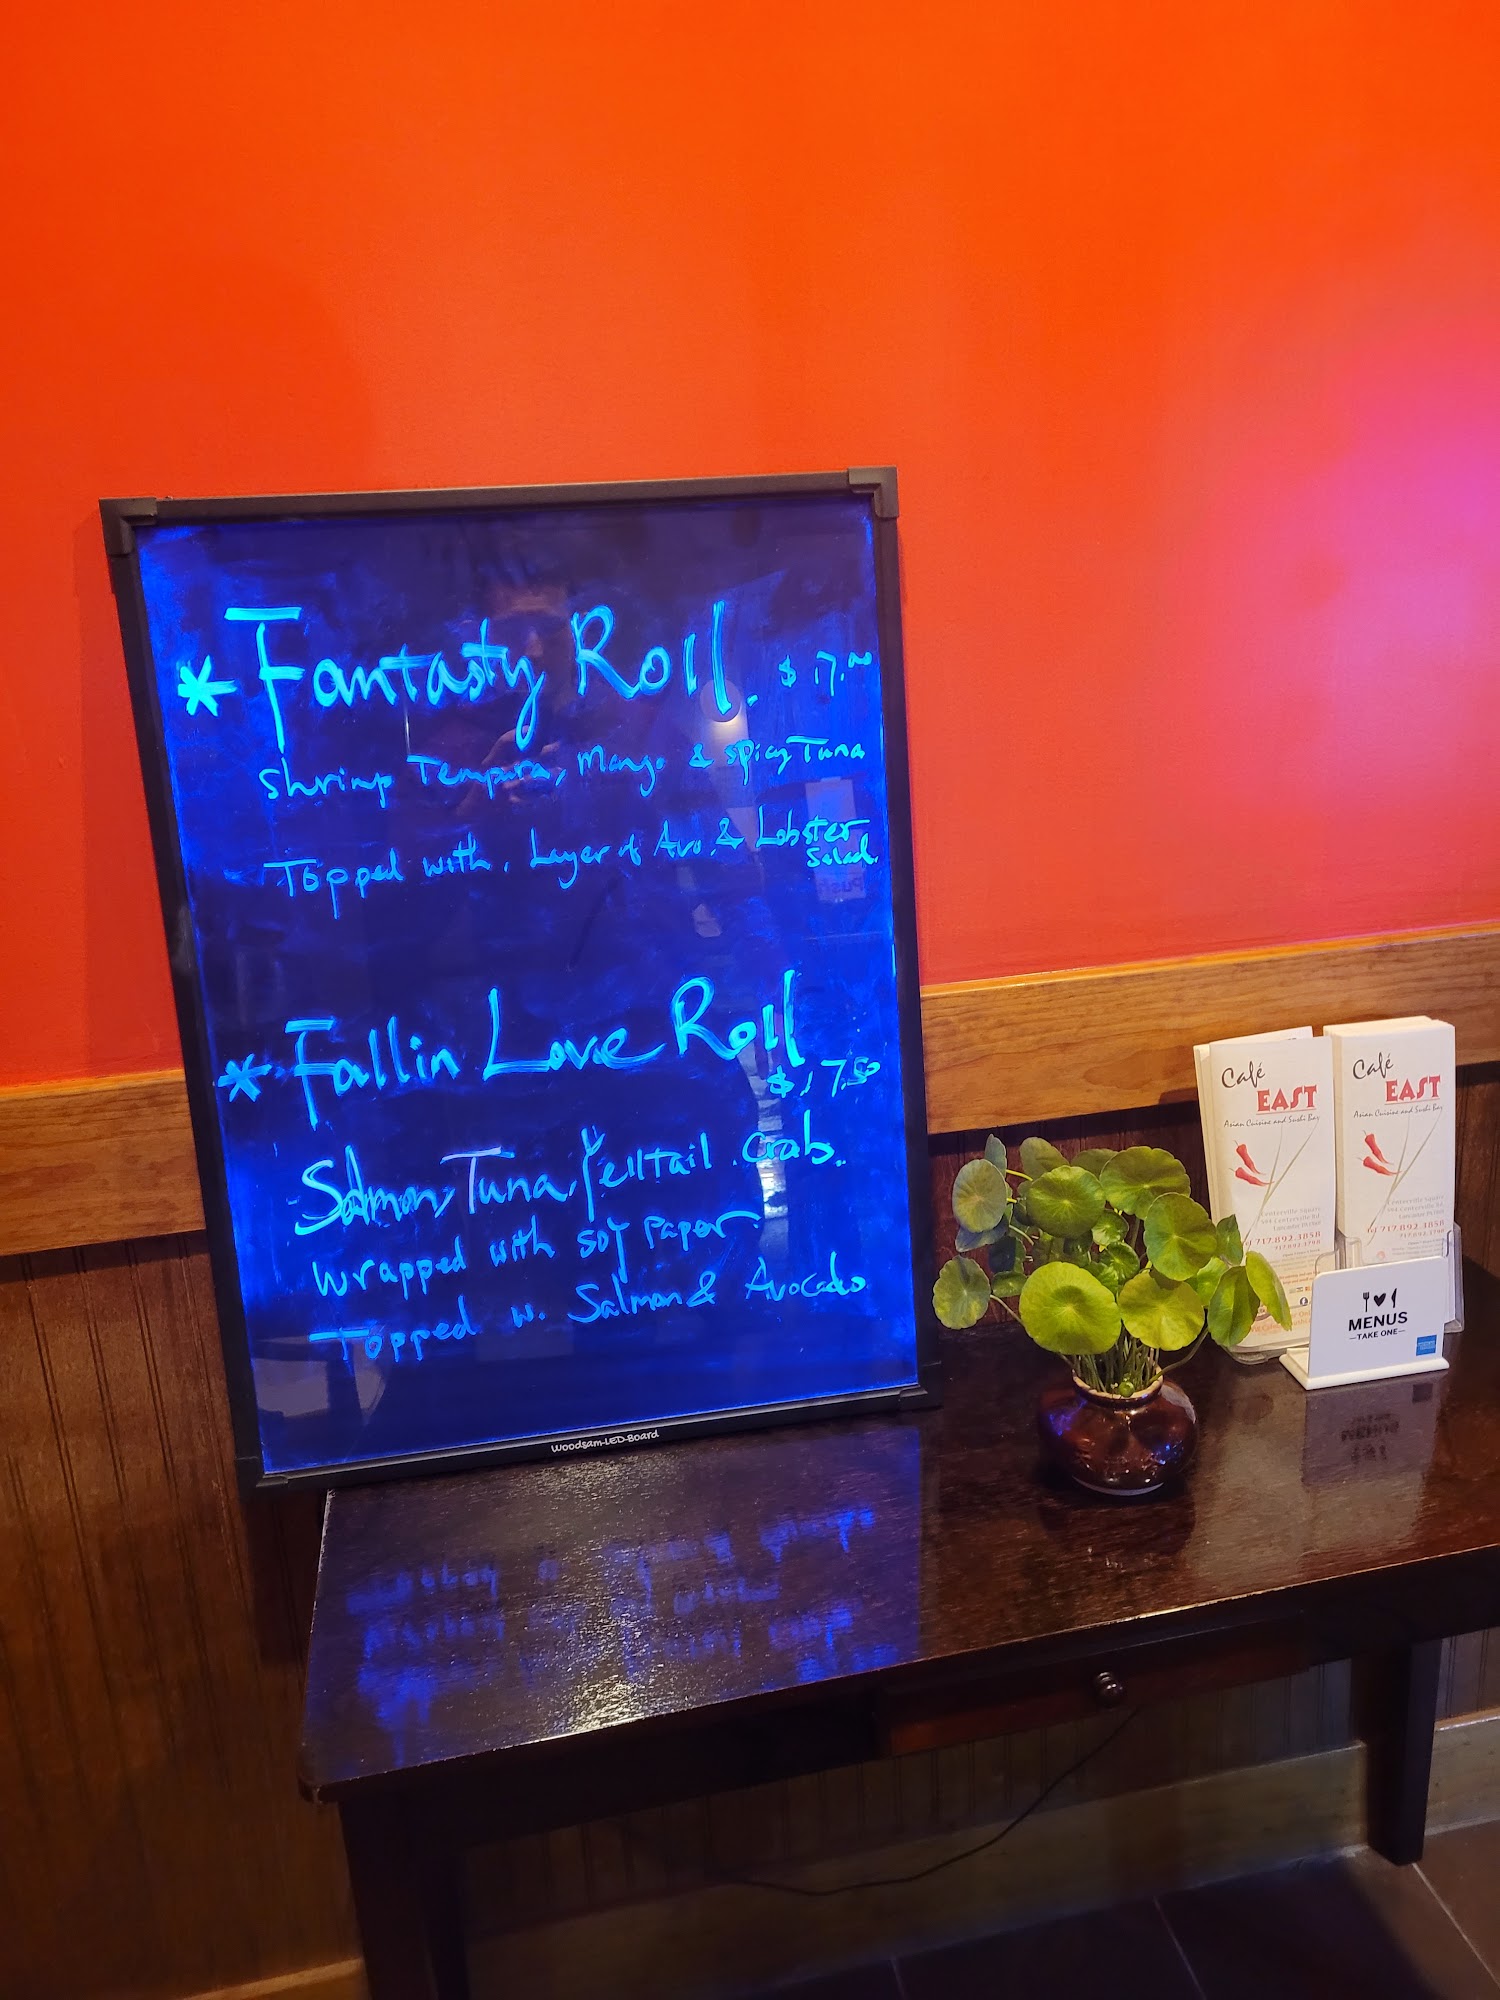 * Fantasty Roll. $17.00
Shrimp Tempura, Mango & spicy Tuna
Topped with, Layer of Avo. & Lobster
Salad.
* Fallin Love Roll
$17.50
Salmon, Tuna, Yelltail Crab.
wrapped with soy paper
Topped w. Salmon & Avocado
Woodsam-LED-Board
Café
EAST
Asian Cuisine and Sushi Bar
Centerville Square
594 Centerville Rd.
Lancaster PA 17601
717.892.3858
717.892.3798
Café
EAST
Asian Cuisine and Sushi Bar
717.892.3858
717.892.3798
MENUS
—TAKE ONE—